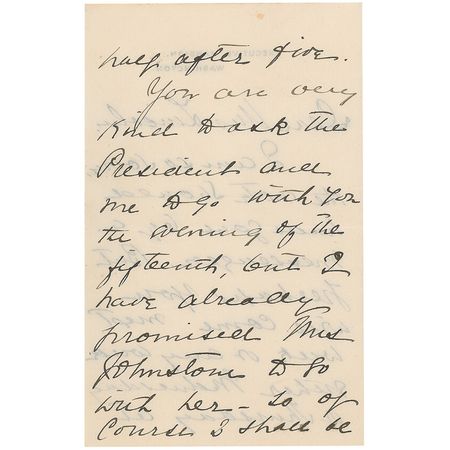 half after five.
You are very
kind to ask the
President and
me to go with you
the evening of the
fifteenth, but I
have already
promised Mrs
Johnstone to go
with her - so of
course I shall be